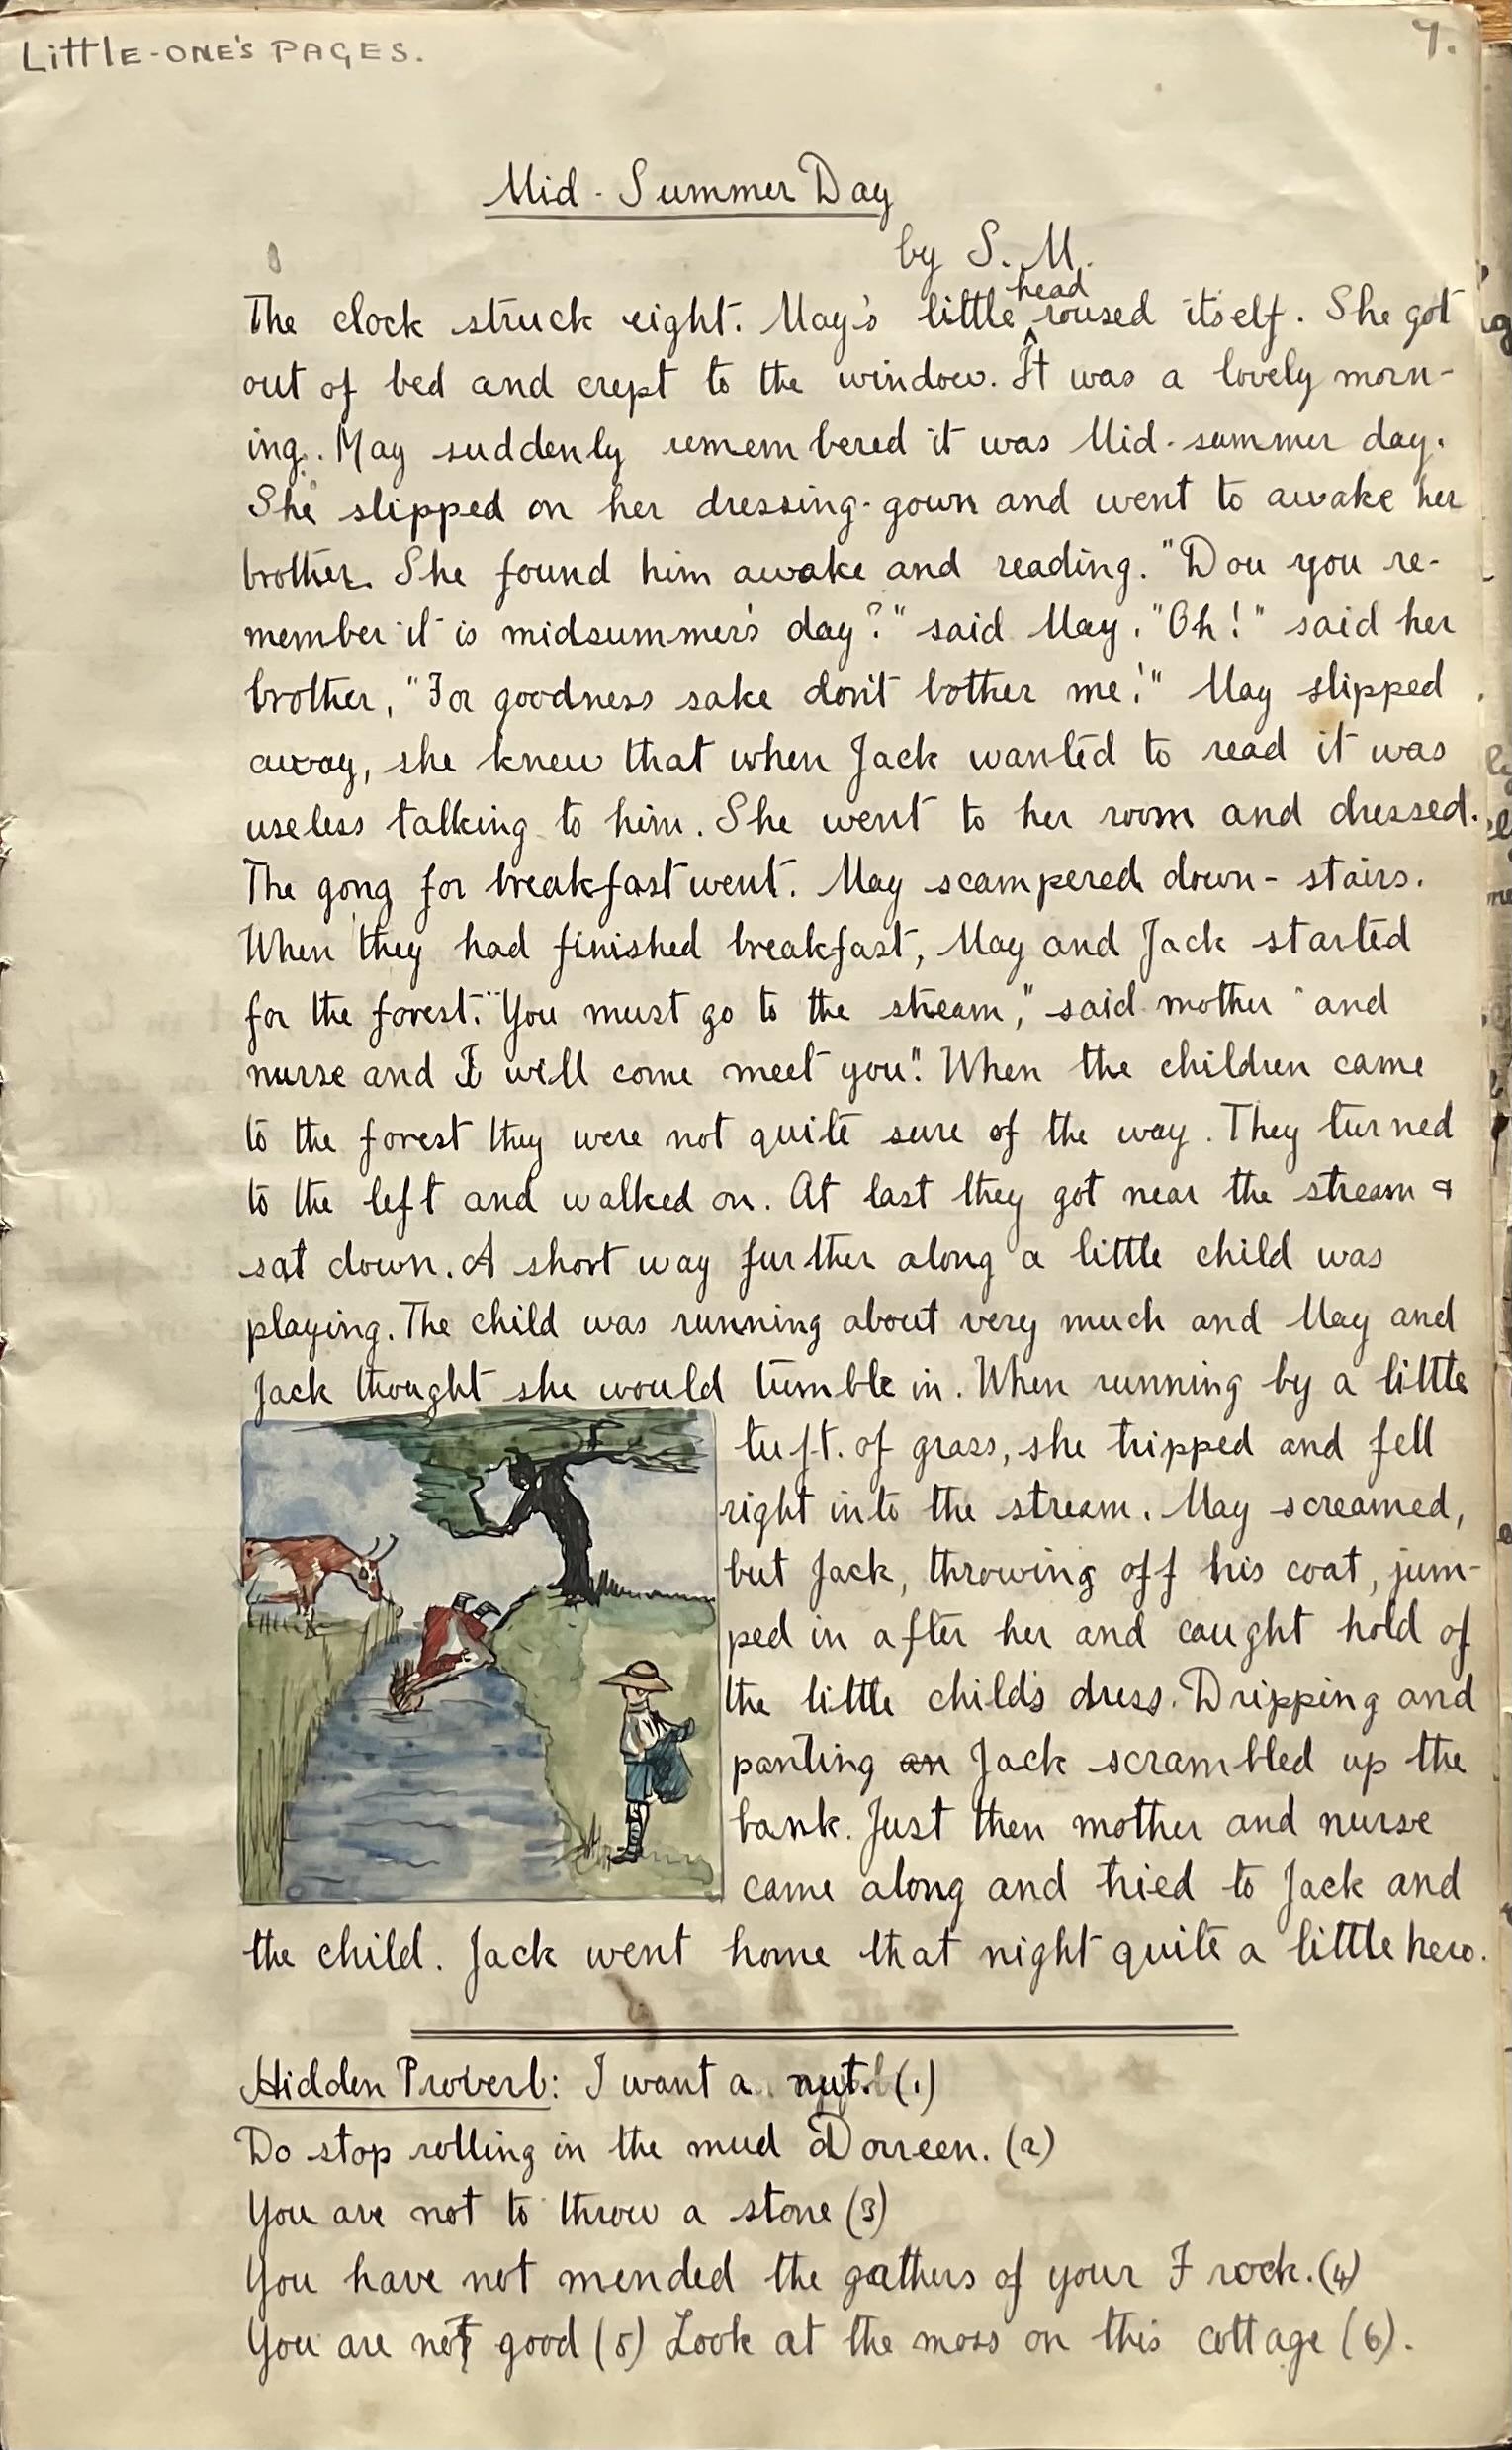 LittLE-ONE'S PAGES.
7.
Mid-Summer Day
by S. M.
head
The clock struck eight. May's little ^ roused itself. She got
out of bed and crept to the window. It was a lovely morn-
ing. May suddenly remembered it was Mid-summer day.
She slipped on her dressing-gown and went to awake her
brother. She found him awake and reading. "Dou you re-
member it is midsummer's day?" said May. "Oh!" said her
brother, "For goodness sake don't bother me!" May slipped
away, she knew that when Jack wanted to read it was
useless talking to him. She went to her room and dressed.
The gong for breakfast went. May scampered down-stairs.
When they had finished breakfast, May and Jack started
for the forest. "You must go to the stream," said mother "and
nurse and I will come meet you". When the children came
to the forest they were not quite sure of the way. They turned
to the left and walked on. At last they got near the stream &
sat down. A short way further along a little child was
playing. The child was running about very much and May and
Jack thought she would tumble in. When running by a little
tuft. of grass, she tripped and fell
right into the stream. May screamed,
but Jack, throwing off his coat, jum-
ped in after her and caught hold of
the little child's dress. Dripping and
panting an Jack scrambled up the
bank. Just then mother and nurse
came along and tried to Jack and
the child. Jack went home that night quite a little hero.
Hidden Proverb: I want a nut. (1)
Do stop rolling in the mud Dorreen. (2)
You are not to throw a stone (3)
You have not mended the gathers of your Frock. (4)
You are not good (5) Look at the moss on this cottage (6).